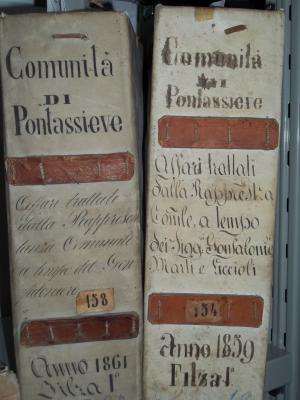 Comunità
DI
Pontassieve
Affari trattati
dalla Rappresen
tanza Comunale
a tempo del Gon
faloniere
158
Anno 1861
Filza 1ª
Comunità
DI
Pontassieve
Affari trattati
dalla Rappresᵗᵃ
Comᵘⁿᵃˡᵉ a tempo
dei Sigg. Gonfalonie
Marti e
154
Anno 1859
Filza 1ª